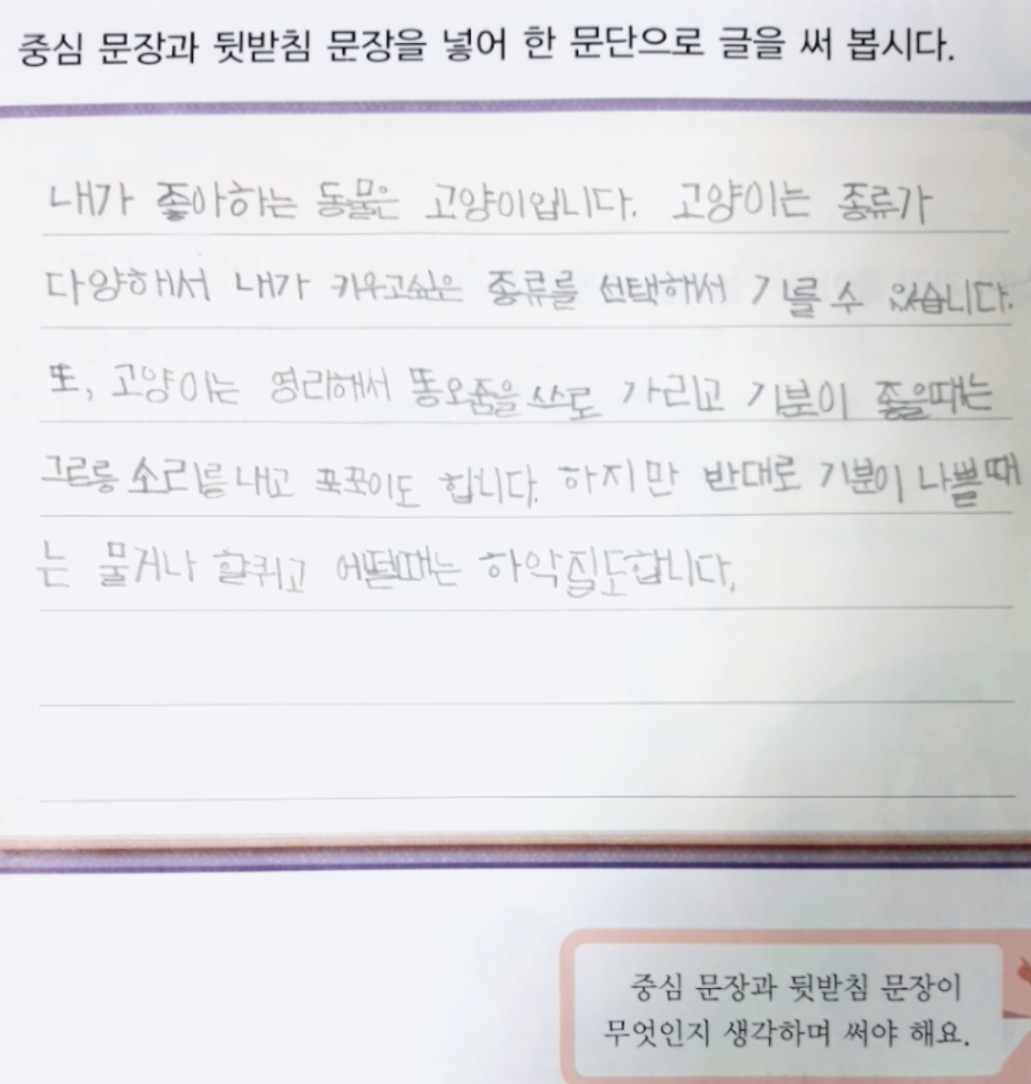 중심 문장과 뒷받침 문장을 넣어 한 문단으로 글을 써 봅시다.
내가 좋아하는 동물은 고양이입니다. 고양이는 종류가
다양해서 내가 키우고싶은 종류를 선택해서 기를 수 있습니다.
또, 고양이는 영리해서 똥오줌을 쓰로 가리고 기분이 좋을때는
그르릉 소리를 내고 꾹꾹이도 합니다. 하지만 반대로 기분이 나쁠때
는 물거나 할퀴고 어떨때는 하악질도합니다.
중심 문장과 뒷받침 문장이
무엇인지 생각하며 써야 해요.